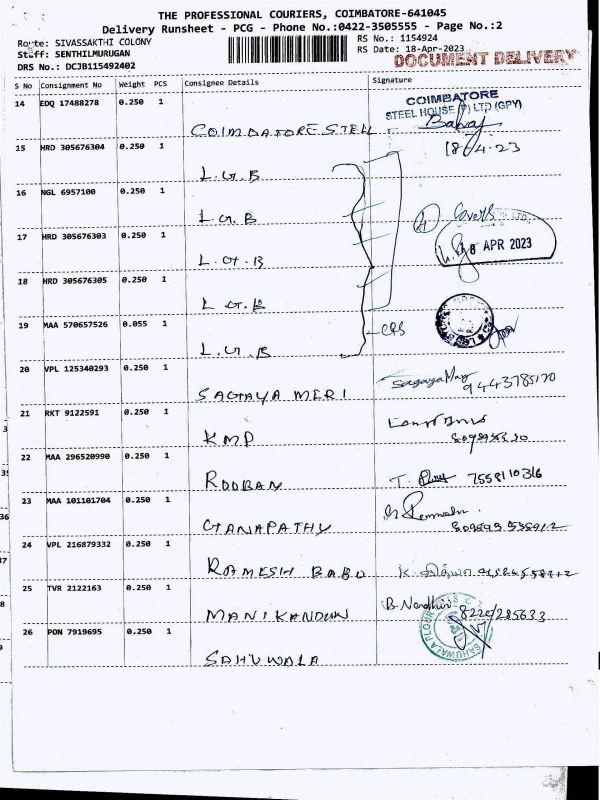 THE PROFESSIONAL COURIERS, COIMBATORE-641045
Delivery Runsheet - PCG - Phone No.:0422-3505555 - Page No.:2
Route: SIVASSAKTHI COLONY RS No.: 1154924
Staff: SENTHILMURUGAN RS Date: 18-Apr-2023
DRS No.: DCJB115492402 DOCUMENT DELIVERY
S No Consignment No Weight PCS Consignee Details Signature
14 EDQ 17488278 0.250 1
COIMBATORE STEEL
COIMBATORE
STEEL HOUSE (P) LTD (GPY)
Balraj
18/4-23
15 HRD 305676304 0.250 1
L.G.B
16 NGL 6957100 0.250 1
L.G.B
17 HRD 305676303 0.250 1
L.G.B
4
18 APR 2023
18 HRD 305676305 0.250 1
L.G.B
19 MAA 570657526 0.055 1
L.G.B
20 VPL 125340293 0.250 1
SAGAYA MERI
21 RKT 9122591 0.250 1
KMP
22 MAA 296520990 0.250 1
ROOBAN
T. 7558110316
23 MAA 101101704 0.250 1
GANAPATHY
24 VPL 216879332 0.250 1
RAMESH BABU
25 TVR 2122163 0.250 1
MANIKANDAN
8220285633
26 PON 7919695 0.250 1
SAHUWALA
SAHUWALA FLOUR